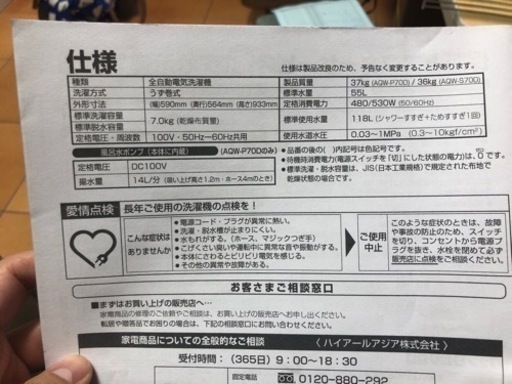 仕様
仕様は製品改良のため、予告なく変更することがあります。
種類 全自動電気洗濯機
洗濯方式 うず巻式
外形寸法 (幅)590mm (奥行)564mm (高さ)933mm
標準洗濯容量 7.0kg (乾燥布質量)
標準脱水容量
定格電圧・周波数 100V・50Hz-60Hz共用
製品質量 37kg (AQW-P70D) / 36kg (AQW-S70D)
標準水量 55L
定格消費電力 480/530W (50/60Hz)
標準使用水量 118L (シャワーすすぎ+ためすすぎ1回)
使用水道水圧 0.03〜1MPa (0.3〜10kgf/cm²)
風呂水ポンプ (本体に内蔵) (AQW-P70Dのみ)
定格電圧 DC100V
揚水量 14L/分 (吸い上げ高さ1.2m・ホース4mのとき)
●品番の後の( )内記号は色記号です。
●待機時消費電力(電源スイッチを「切」にした状態の電力)は、0です。
●標準洗濯・脱水容量は、JIS(日本工業規格)で規定された布地で
乾燥状態の場合です。
愛情点検 長年ご使用の洗濯機の点検を!
こんな症状は
ありませんか
●電源コード・プラグが異常に熱い。
●洗濯・脱水槽が止まりにくい。
●水もれがする。(ホース、マジックつぎ手)
●こげくさい臭いや運転中に異常な音や振動がする。
●本体にさわるとビリビリ電気を感じる。
●その他の異常や故障がある。
ご使用
中止
このような症状のときは、故障
や事故の防止のため、スイッチ
を切り、コンセントから電源プ
ラグを抜き、水栓を閉めて必ず
販売店に点検をご相談ください。
お客さまご相談窓口
■まずはお買い上げの販売店へ…
家電商品の修理のご依頼やご相談は、お買い上げの販売店へお申し出ください。
転居や贈答品でお困りの場合は、下記の相談窓口にお問い合わせください。
家電商品についての全般的なご相談 〈ハイアールアジア株式会社〉
受付時間:(365日) 9:00〜18:30
固定電話 0120-880-292